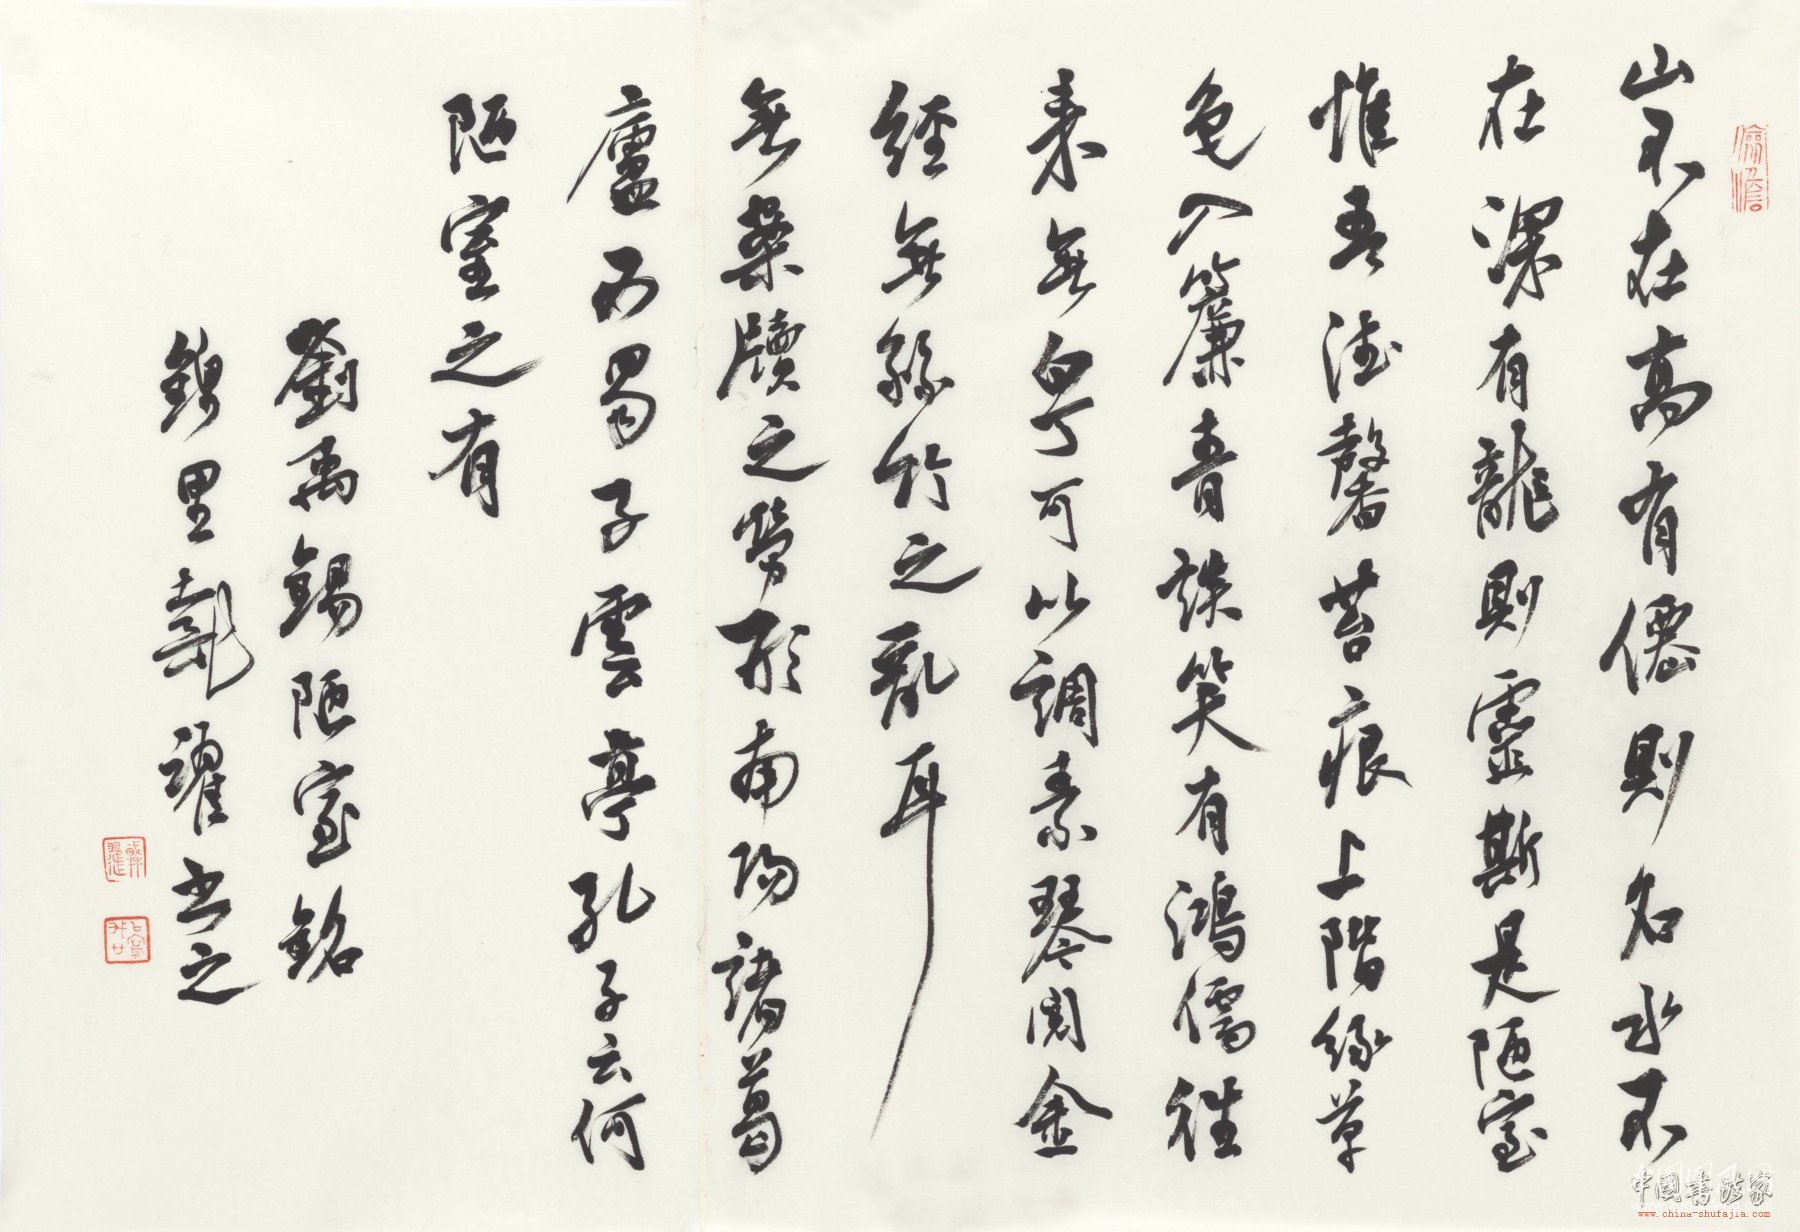 山不在高有僊則名水不
在深有龍則靈斯是陋室
惟吾德馨苔痕上階綠草
色入簾青談笑有鴻儒往
来無白丁可以調素琴閱金
經無絲竹之亂耳
無案牘之勞形南陽諸葛
廬西蜀子雲亭孔子云何
陋室之有
劉禹錫陋室銘
里彭书之
中国书法家
www.china-shufajia.com